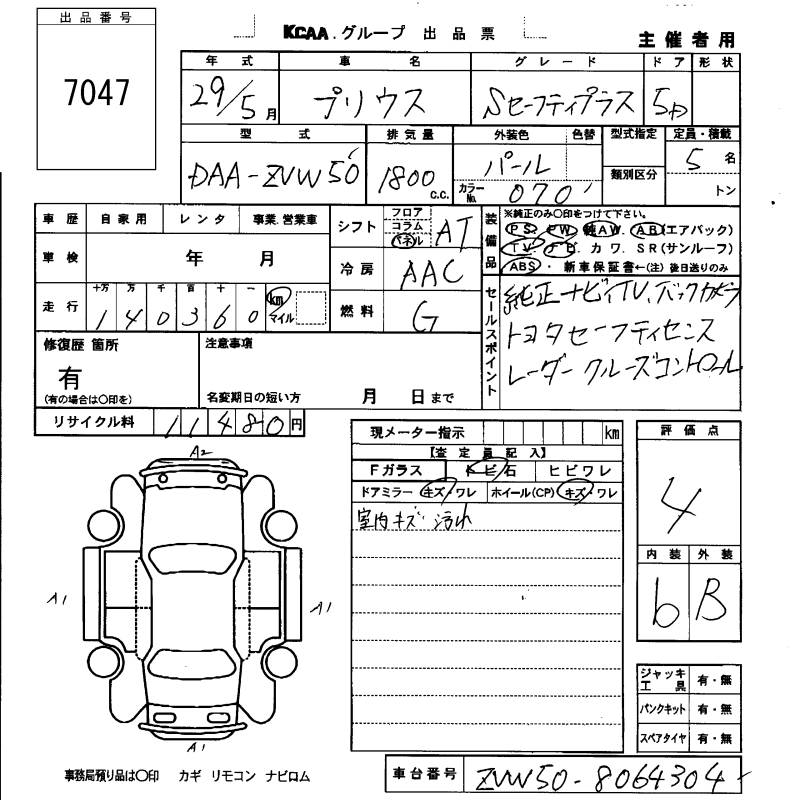 出品番号
7047
KCAA.グループ 出品票
主催者用
年式 車名 グレード ドア 形状
29/5月 プリウス Sセーフティプラス 5D
型式 排気量 外装色 色替 型式指定 定員・積載
DAA-ZVW50 1800 C.C. パール 類別区分 5名
カラーNo. 070 トン
車歴 自家用 レンタ 事業.営業車
シフト フロア コラム パネル AT
装備品 ※純正のみ〇印をつけて下さい。
PS. PW. 純AW. AB(エアバック)
TV. ナビ. カワ. SR(サンルーフ)
ABS・ 新車保証書←(注) 後日送りのみ
車検 年 月
冷房 AAC
走行 十万 万 千 百 十 一
140360 km マイル
燃料 G
セールスポイント
純正ナビィTV、バックカメラ
トヨタセーフティセンス
レーダークルーズコントロール
修復歴 箇所
有
(有の場合は〇印を)
注意事項
名変期日の短い方 月 日まで
リサイクル料 11480円
現メーター指示 km
【査定員記入】
Fガラス トビ石 ヒビワレ
ドアミラー キズ・ワレ ホイール(CP) キズ・ワレ
室内キズ 汚れ
評価点
4
内装 外装
b B
A2
A1
A1
A1
ジャッキ工具 有・無
パンクキット 有・無
スペアタイヤ 有・無
事務局預り品は〇印 カギ リモコン ナビロム
車台番号 ZVW50-8064304